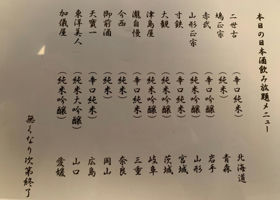 本日の日本酒飲み放題メニュー
二世古 (辛口純米) 北海道
鳩正宗 (純米吟醸) 青森
赤武 (純米) 岩手
山形正宗 (辛口純米) 山形
寸鉄 (辛口純米) 宮城
大観 (純米吟醸) 茨城
津島屋 (純米吟醸) 岐阜
瀧自慢 (辛口純米) 三重
今西 (純米) 奈良
御前酒 (純米) 岡山
天寶一 (辛口純米) 広島
東洋美人 (純米大吟醸) 山口
加儀屋 (純米吟醸) 愛媛
無くなり次第終了